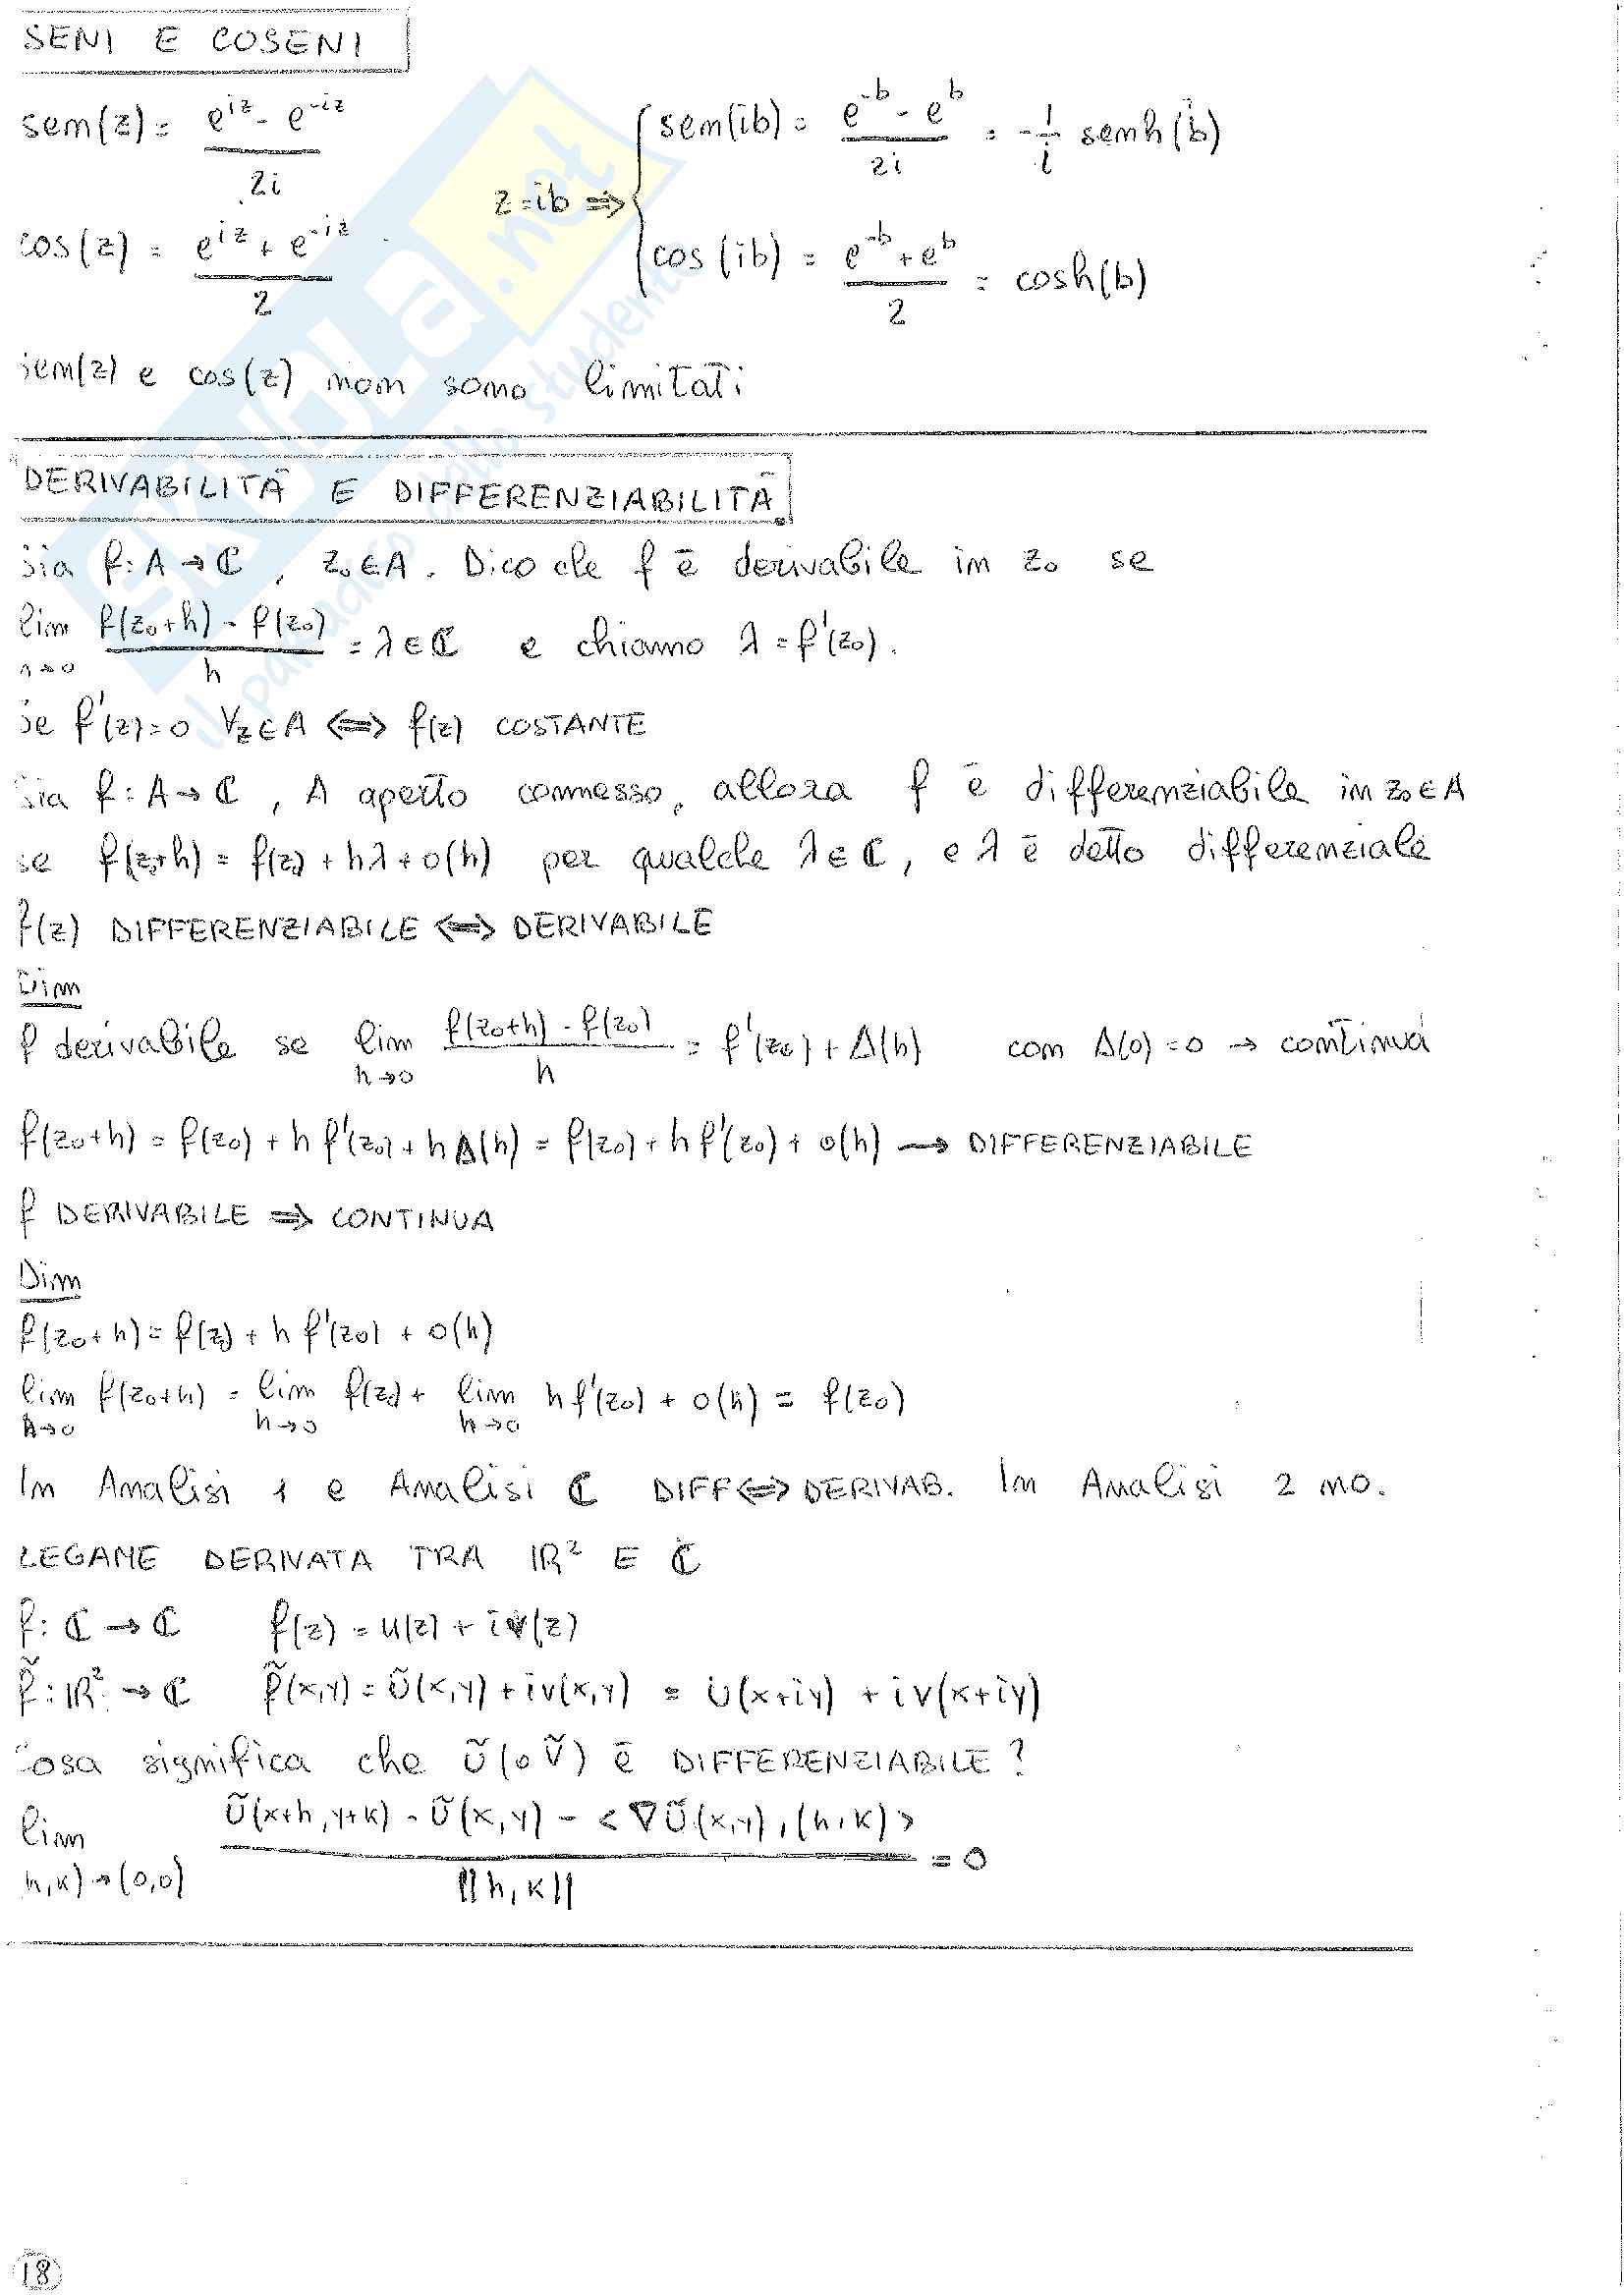 SENI E COSENI
sen(z) = (e^{iz} - e^{-iz}) / 2i
z = ib ⇒ { sen(ib) = (e^{-b} - e^{b}) / 2i = -1/i senh(b)
cos(z) = (e^{iz} + e^{-iz}) / 2
cos(ib) = (e^{-b} + e^{b}) / 2 = cosh(b)
sen(z) e cos(z) non sono limitati
DERIVABILITÀ E DIFFERENZIABILITÀ
Sia f: A → ℂ, z₀ ∈ A. Dico che f è derivabile in z₀ se
lim h→0 (f(z₀+h) - f(z₀)) / h = λ ∈ ℂ e chiamo λ = f'(z₀).
Se f'(z) = 0 ∀z ∈ A ⟺ f(z) COSTANTE
Sia f: A → ℂ, A aperto connesso, allora f è differenziabile in z₀ ∈ A
se f(z₀+h) = f(z₀) + hλ + o(h) per qualche λ ∈ ℂ, e λ è detto differenziale
f(z) DIFFERENZIABILE ⟺ DERIVABILE
Dim
f derivabile se lim h→0 (f(z₀+h) - f(z₀)) / h = f'(z₀) + Δ(h) con Δ(0) = 0 → continua
f(z₀+h) = f(z₀) + h f'(z₀) + h Δ(h) = f(z₀) + h f'(z₀) + o(h) → DIFFERENZIABILE
f DERIVABILE ⇒ CONTINUA
Dim
f(z₀+h) = f(z₀) + h f'(z₀) + o(h)
lim h→0 f(z₀+h) = lim h→0 f(z₀) + lim h→0 h f'(z₀) + o(h) = f(z₀)
In Analisi 1 e Analisi ℂ DIFF ⟺ DERIVAB. In Analisi 2 no.
LEGAME DERIVATA TRA ℝ² E ℂ
f: ℂ → ℂ f(z) = u(z) + iv(z)
f̃: ℝ² → ℂ f̃(x,y) = ũ(x,y) + iv(x,y) = u(x+iy) + iv(x+iy)
Cosa significa che ũ (o ṽ) è DIFFERENZIABILE?
lim (h,k)→(0,0) (ũ(x+h, y+k) - ũ(x,y) - <∇ũ(x,y), (h,k)>) / ||h,k|| = 0
18
skuola.net
il paradiso dello studente